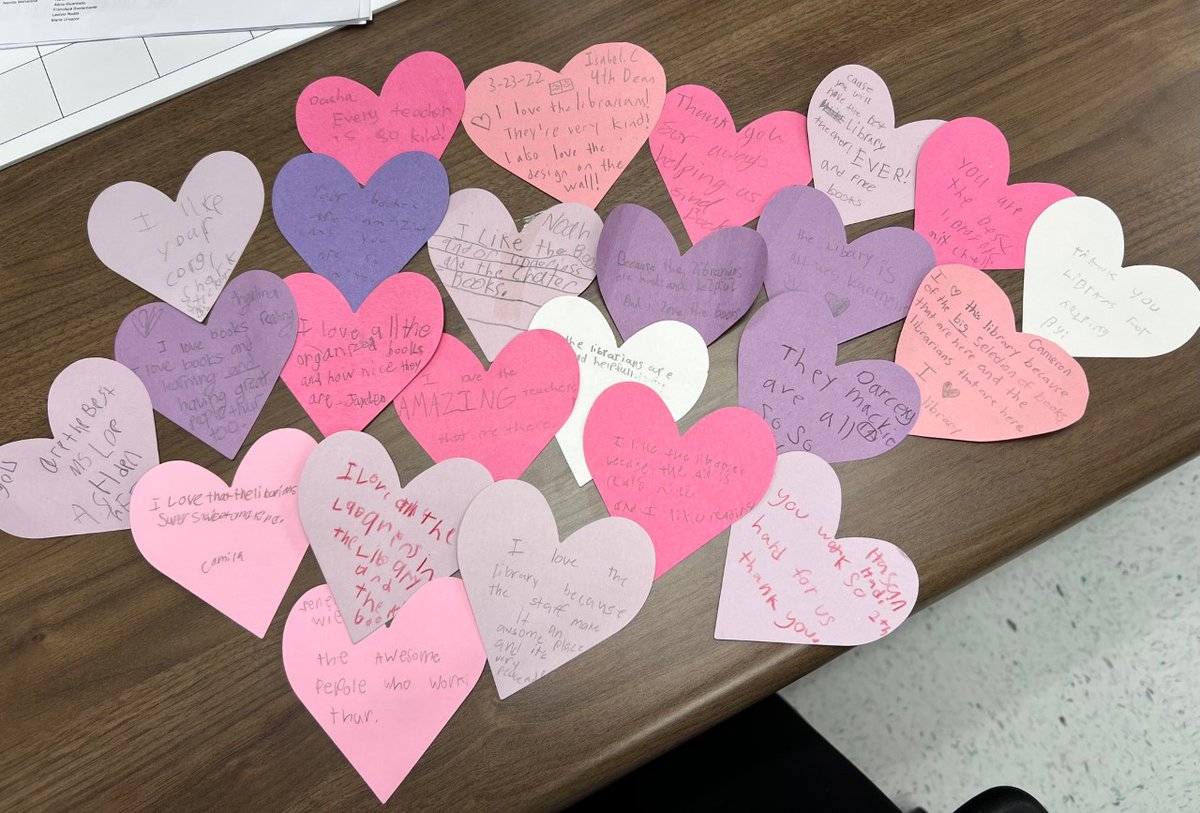 Dasha
Every teacher
is so kind!
3-23-22
Isabel.C
4th Dean
I love the librarians!
They're very kind!
I also love the
design on the
wall!
Thank you
for always
helping us
find
cause
you will
have the best
Library
EVER!
and free
books
you are
the best
I like
your
corgi
Your books
are amazing
Noah
I Like the Book
and the Chater
books.
Because the librarians
are kind and helpful
And I love the books
the library is
ALL Ways
thank you
Library for
Cameron
I this library because
of the big selection of books
that are here and the
librarians that are here.
I
library
I love books
love books and
learning and
having great
too.
I love all the
books
and how nice they
are - Jayden
I love the
AMAZING teachers
that are there.
the librarians are
and helpfull
Darcey
Mackie
They
are all
so so
you
are the Best
Ms Loe
I Love that the librarians
Super sweet
Camila
I Love all the
in
the Library
and
the
I love the
library because
the staff make
it an
awsome place
and its
very
I like the
because the
realy nice
and I like reading
Hassan
Hadi
2th
You work so
hard for us
thank you.
the awesome
pepole who
thar.